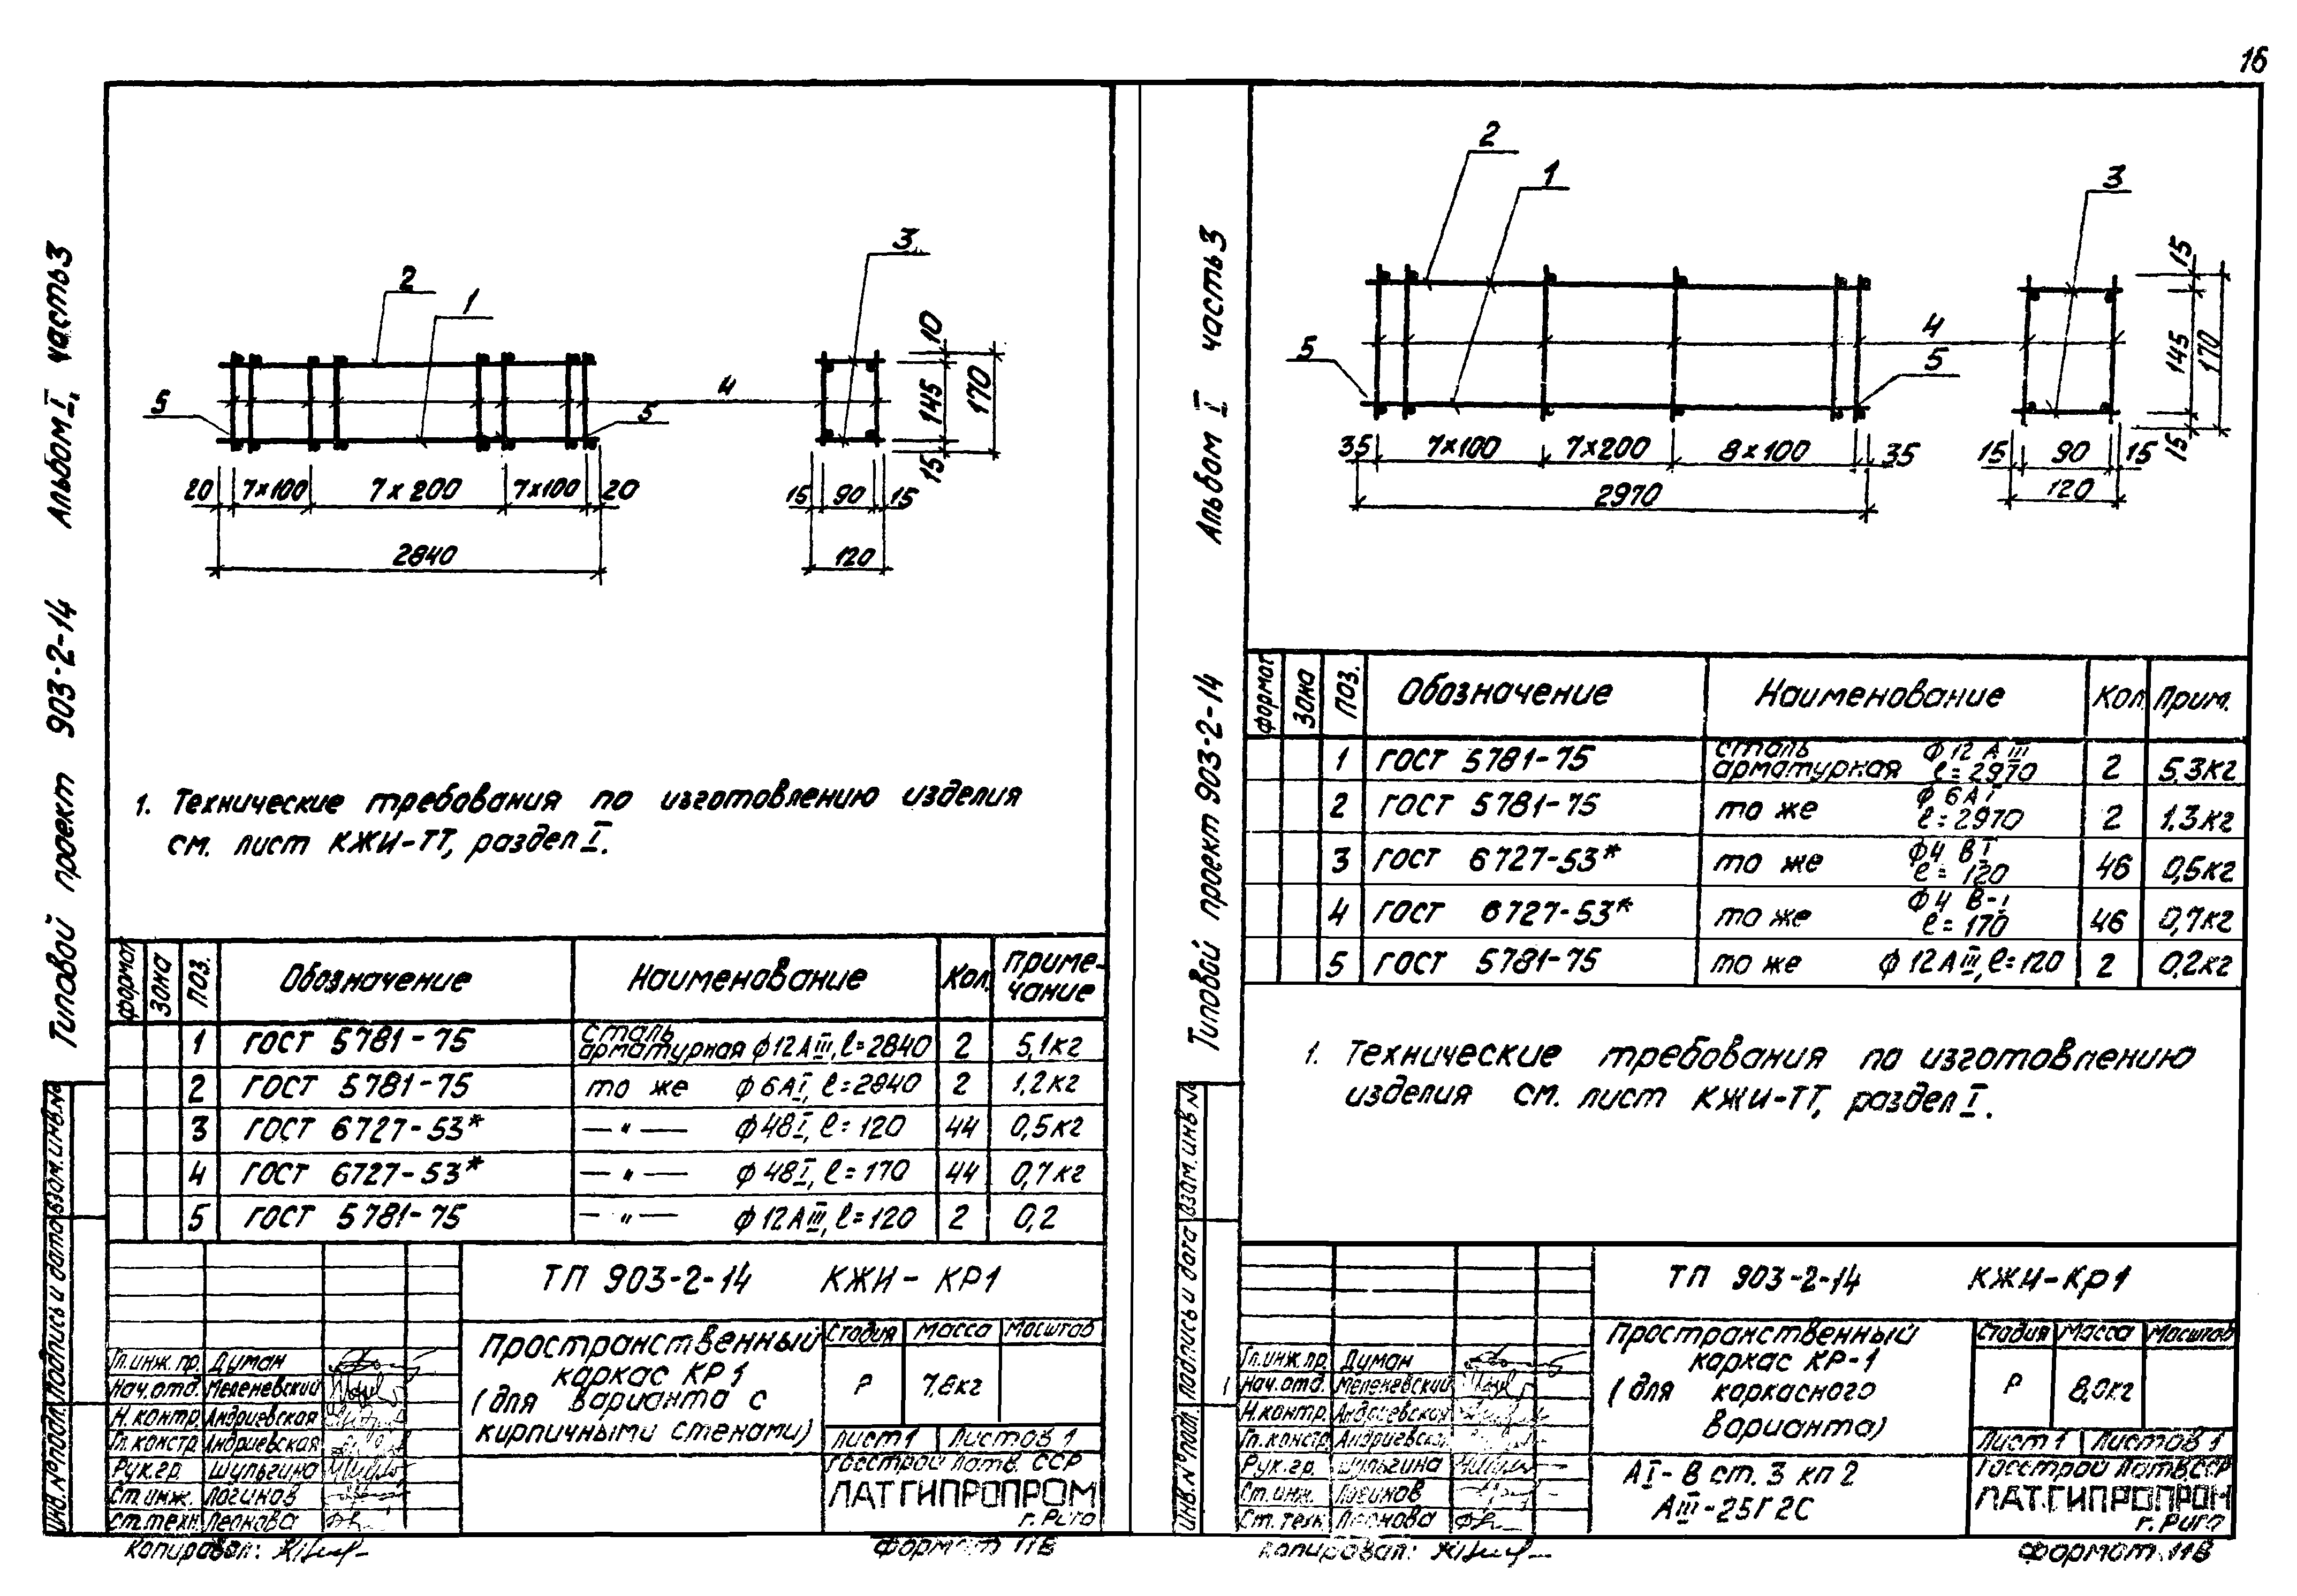 16
Типовой проект 903-2-14 Альбом I, часть 3
2
1
3
5
4
5
10
145
15
170
20 7×100 7×200 7×100 20
2840
15 90 15
120
1. Технические требования по изготовлению изделия
см. лист КЖИ-ТТ, раздел I.
формат зона поз. Обозначение Наименование Кол. Приме-
чание
1 ГОСТ 5781-75 Сталь арматурная ф12АIII, ℓ=2840 2 5,1кг
2 ГОСТ 5781-75 то же ф6АI, ℓ=2840 2 1,2кг
3 ГОСТ 6727-53* —"— ф48I, ℓ=120 44 0,5кг
4 ГОСТ 6727-53* —"— ф48I, ℓ=170 44 0,7кг
5 ГОСТ 5781-75 —"— ф12АIII, ℓ=120 2 0,2
ТП 903-2-14 КЖИ-КР1
Пространственный
каркас КР1
(для варианта с
кирпичными стенами)
Стадия Масса Масштаб
Р 7,6кг
Лист 1 Листов 1
Госстрой Латв. ССР
ЛАТГИПРОПРОМ
г. Рига
Гл.инж.пр. Думан
Нач.отд. Меленевский
Н.контр. Андриевская
Гл.констр. Андриевская
Рук.гр. Шульгина
Ст.инж. Логинов
Ст.техн. Леонова
Инв.№подл. Подпись и дата Взам.инв.№
Копировал:
Формат 11В
Типовой проект 903-2-14 Альбом I часть 3
2
1
3
5
4
5
15
145
15
170
35 7×100 7×200 8×100 35
2970
15 90 15
120
формат зона поз. Обозначение Наименование Кол. Прим.
1 ГОСТ 5781-75 сталь арматурная ф12АIII ℓ=2970 2 5,3кг
2 ГОСТ 5781-75 то же ф6АI ℓ=2970 2 1.3кг
3 ГОСТ 6727-53* то же ф4 ВI ℓ=120 46 0,5кг
4 ГОСТ 6727-53* то же ф4 В-I ℓ=170 46 0,7кг
5 ГОСТ 5781-75 то же ф12АIII, ℓ=120 2 0,2кг
1. Технические требования по изготовлению
изделия см. лист КЖИ-ТТ, раздел I.
ТП 903-2-14 КЖИ-КР1
Пространственный
каркас КР-1
(для каркасного
варианта)
Стадия Масса Масштаб
Р 8,0кг
Лист 1 Листов 1
АI-В ст. 3 кп 2
АIII-25Г2С
Госстрой Латв ССР
ЛАТ.ГИПРОПРОМ
г. Рига
Гл.инж.пр. Думан
Нач.отд. Меленевский
Н.контр. Андриевская
Гл.констр. Андриевская
Рук.гр. Шульгина
Ст.инж. Логинов
Ст.техн. Леонова
Инв.№подл. Подпись и дата Взам.инв.№
Копировал:
Формат 11В